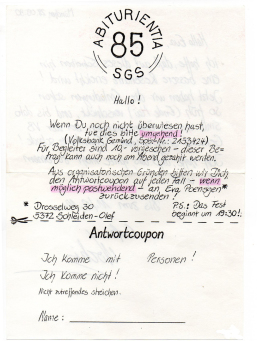 ABITURIENTIA
85
SGS
Hallo!
Wenn Du noch nicht überwiesen hast,
tue dies bitte umgehend!
(Volksbank Gemünd, Spar-Nr.: 2133424)
Für Begleiter sind 10,- vorgesehen - dieser Be-
trag kann auch noch am Abend gezahlt werden.
Aus organisatorischen Gründen bitten wir Dich,
den Antwortcoupon auf jeden Fall - wenn
möglich postwendend - an Erg. Poensgen*
zurückzusenden!
* Drosselweg 30
5372 Schleiden-Olef
P.S.: Das Fest
beginnt um 19:30!.
Antwortcoupon
Ich komme mit Personen!
Ich komme nicht!
Nicht zutreffendes streichen.
Name: